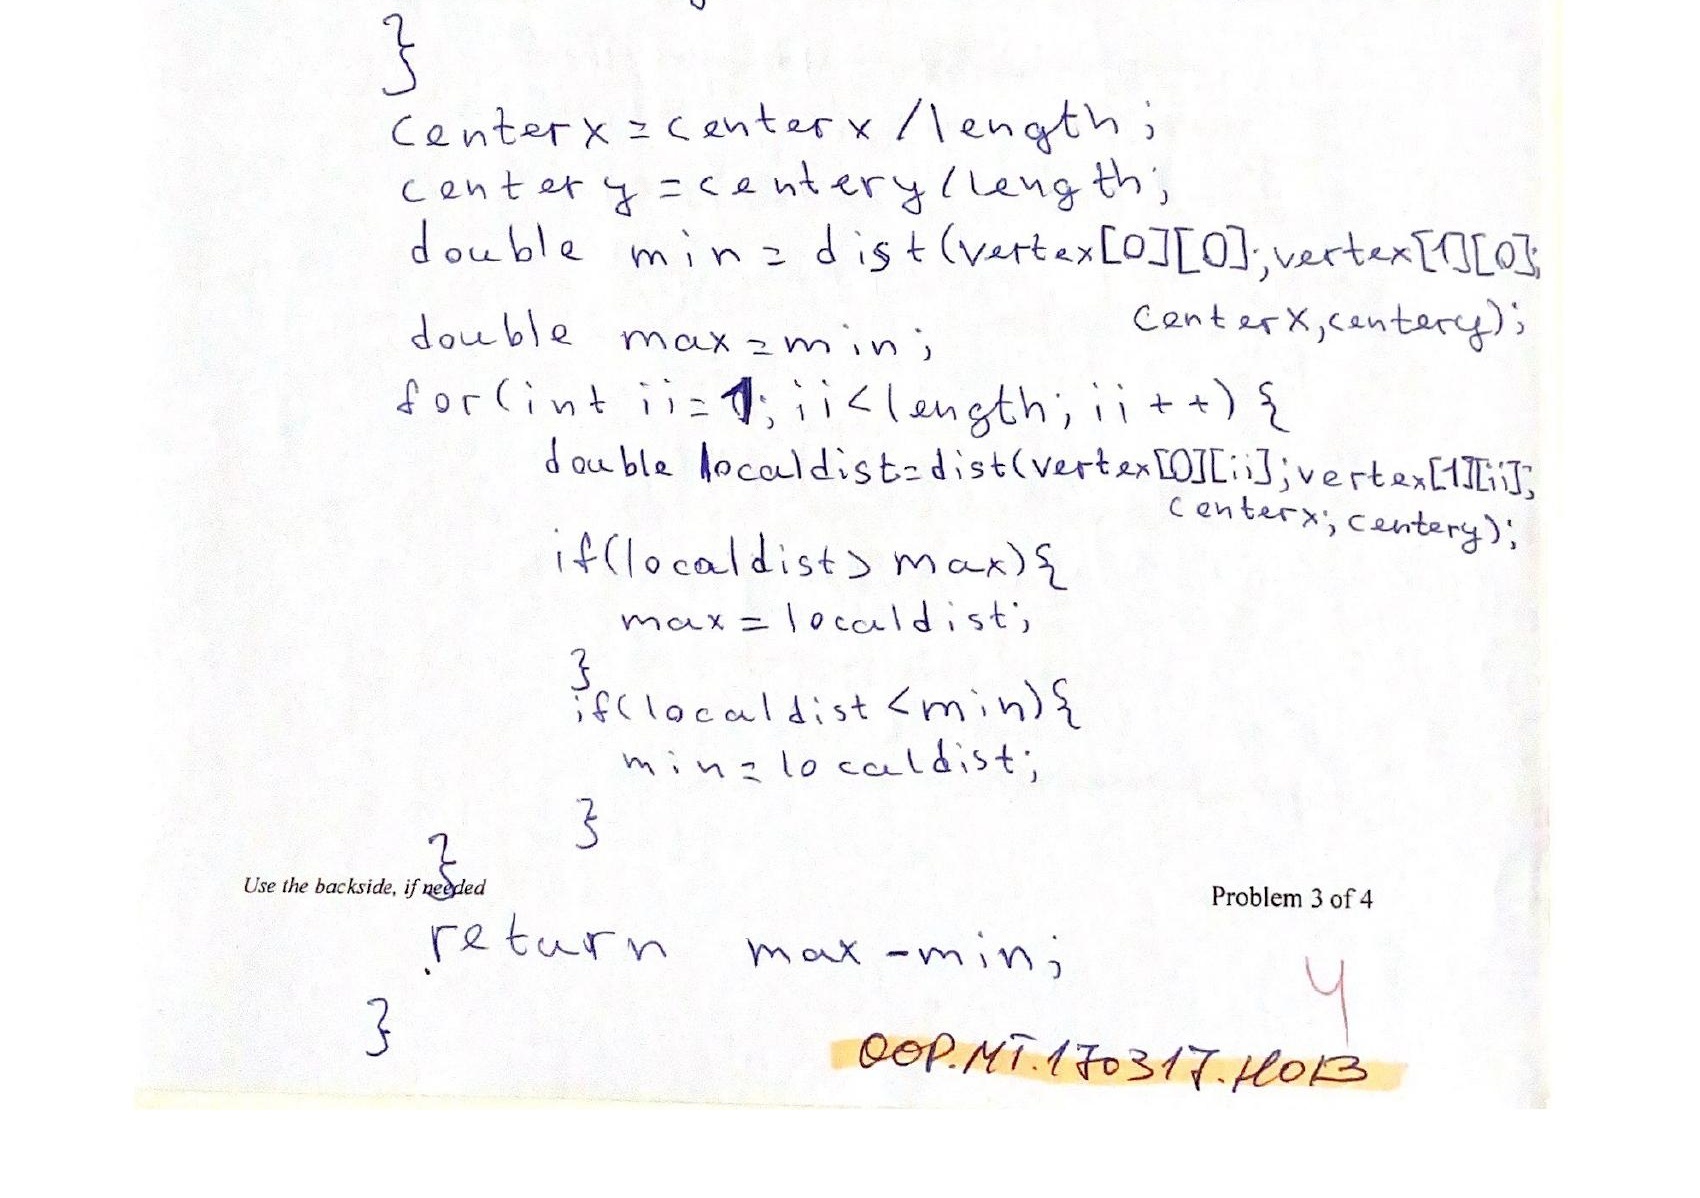 }
centerx=centerx/length;
centery=centery/length;
double min=dist(vertex[0][0];vertex[1][0];
centerx,centery);
double max=min;
for(int ii=1;ii<length;ii++){
double localdist=dist(vertex[0][ii];vertex[1][ii];
centerx;centery);
if(localdist>max){
max=localdist;
}
if(localdist<min){
min=localdist;
}
}
Use the backside, if needed
Problem 3 of 4
return max-min;
}
4
OOP.MT.170317.H013